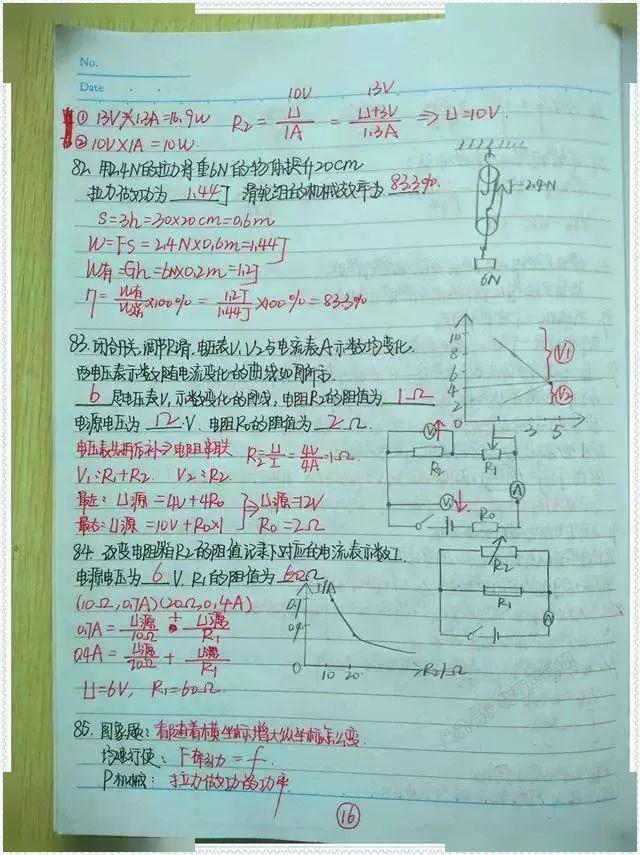 No.
Date
10V 13V
① 13V×1.3A=16.9W R2 = U/1A = U+3V/1.3A ⇒ U=10V.
② 10V×1A=10W.
82. 用2.4N的拉力将重6N的物体提升20cm
拉力做功为 1.44J 滑轮组的机械效率为 83.3%.
F=2.4N
6N
S=3h=3×20cm=0.6m
W=Fs=2.4N×0.6m=1.44J
W有=Gh=6N×0.2m=1.2J
η=W有/W总×100%=1.2J/1.44J×100%=83.3%
83. 闭合开关,调节R滑,电压表V1、V2与电流表A示数均变化.
两电压表示数随电流变化的图线如图所示.
b 是电压表V2示数变化的图线,电阻R2的阻值为 1Ω
电源电压为 12 V、电阻R0的阻值为 2 Ω.
10
8
6
4
2
0
1 3 5
V1
V2
电压表先去后补⇒电阻串联 R2=U/I=4V/4A=1Ω
V1:R1+R2. V2:R2.
最左:U源=4V+4R0 ⇒U源=12V
最右:U源=10V+R0×1 R0=2Ω
R2
R1
A
R0
84. 改变电阻箱R2的阻值记录下对应的电流表示数I.
电源电压为 6 V. R1的阻值为 60Ω
(10Ω,0.7A)(20Ω,0.4A)
0.7A=U源/10Ω+U源/R1
0.4A=U源/20Ω+U源/R1
U=6V, R1=60Ω
I/A
0.7
0.4
0
10 20
R2/Ω
R2
R1
A
85. 图象题:看随着横坐标增大纵坐标怎么变.
匀速行使:F牵引力=f.
P机械:拉力做功的功率
16